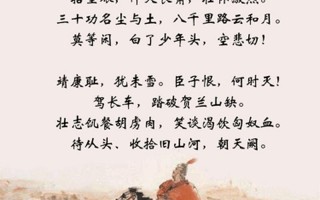 三十功名尘与土，八千里路云和月。
莫等闲，白了少年头，空悲切！
靖康耻，犹未雪。臣子恨，何时灭！
驾长车，踏破贺兰山缺。
壮志饥餐胡虏肉，笑谈渴饮匈奴血。
待从头、收拾旧山河，朝天阙。